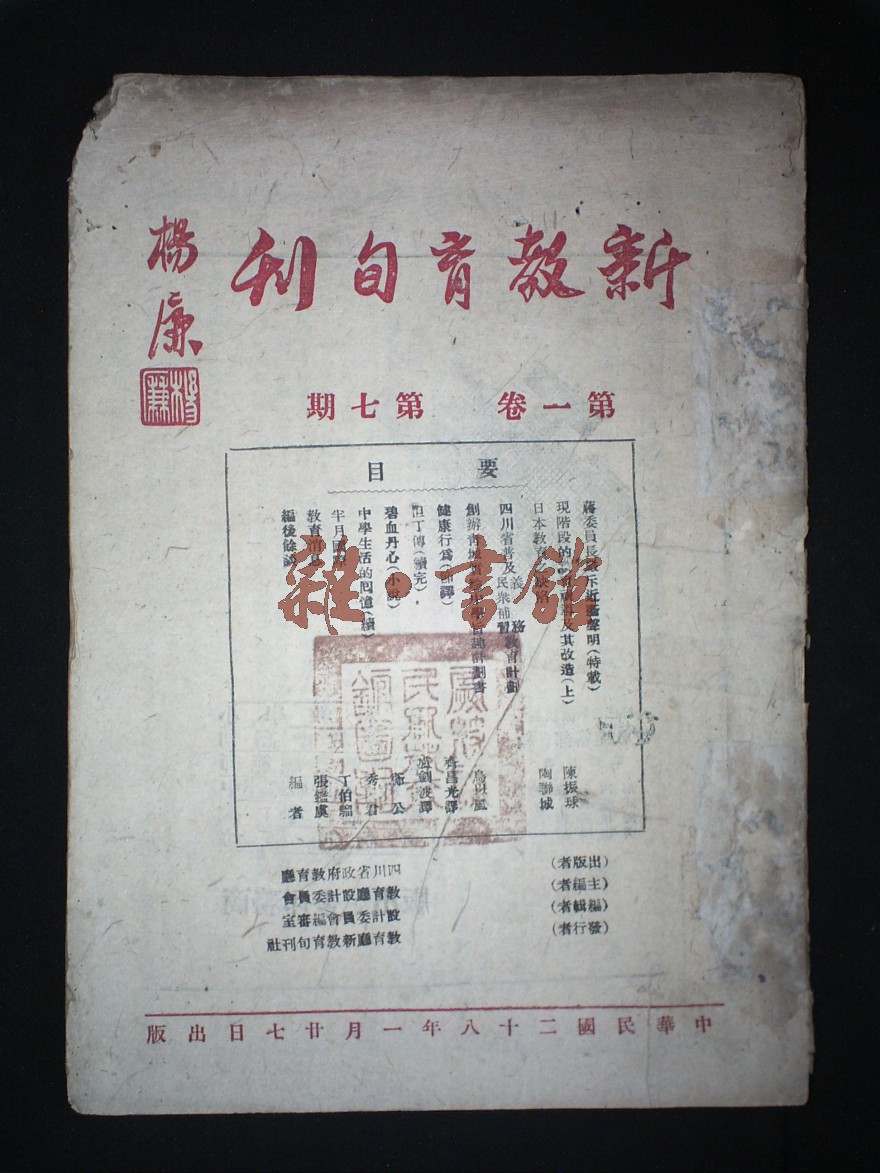 新教育旬刊
楊廉
第一卷 第七期
要目
蔣委員長 示近 聲明(特載)
現階段的 及其改造(上) 陳振球
日本教育 陶聯城
四川省普及義務 民衆補習教育計劃
創辦青城 計劃書
健康行爲( 譯) 昌光譯
但丁傳(續完) 劍波譯
碧血丹心(小說) 公
中學生活的回憶(續) 秀君
半月國際 丁伯騮
教育消息 張鑑虞
編後餘談 編者
(出版者) 四川省政府教育廳
(主編者) 教育廳設計委員會
(編輯者) 設計委員會編審室
(發行者) 教育廳新教育旬刊社
中華民國二十八年一月廿七日出版
雜·書館